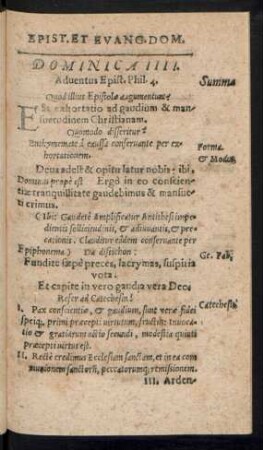 EPIST. ET EVANG. DOM.
DOMINICA IIII.
Adventus Epist. Phil. 4.
Quod illius Epistolæ argumentum?
Summa
Est exhortatio ad gaudium & mansuetudinem Christianam.
Quomodo disseritur?
Enthymemate à causa conservante per exhortationem.
Forma
& Modus
Deus adest & opitulatur nobis: ibi,
Dominus propè est Ergò in eo conscientiæ
tranquillitate gaudebimus & mansueti
erimus.
(Ubi: Gaudete Amplificatur Antithesi impedimenti
sollicitudinis, & adiuvantis,
precationis. Clauditur eâdem conservante per
Epiphonema.) Da distichon:
Fundite sæpè preces, lacrymas, suspiria
vota:
Et capite in vero gaudia vera Deo.
Refer ad Catechesin?
Catechesis
I. Pax conscientiæ, & gaudium, sunt veræ fidei
speiq;, primi præcepti virtutum, fructus: Invocatio
& gratiarum actio secundi, modestia quinti
Præcepti virtus est.
II. Rectè credimus Ecclesiam sanctam, et in ea communionem
sanctorum, peccatorumq; remissionem.
III. Arden-